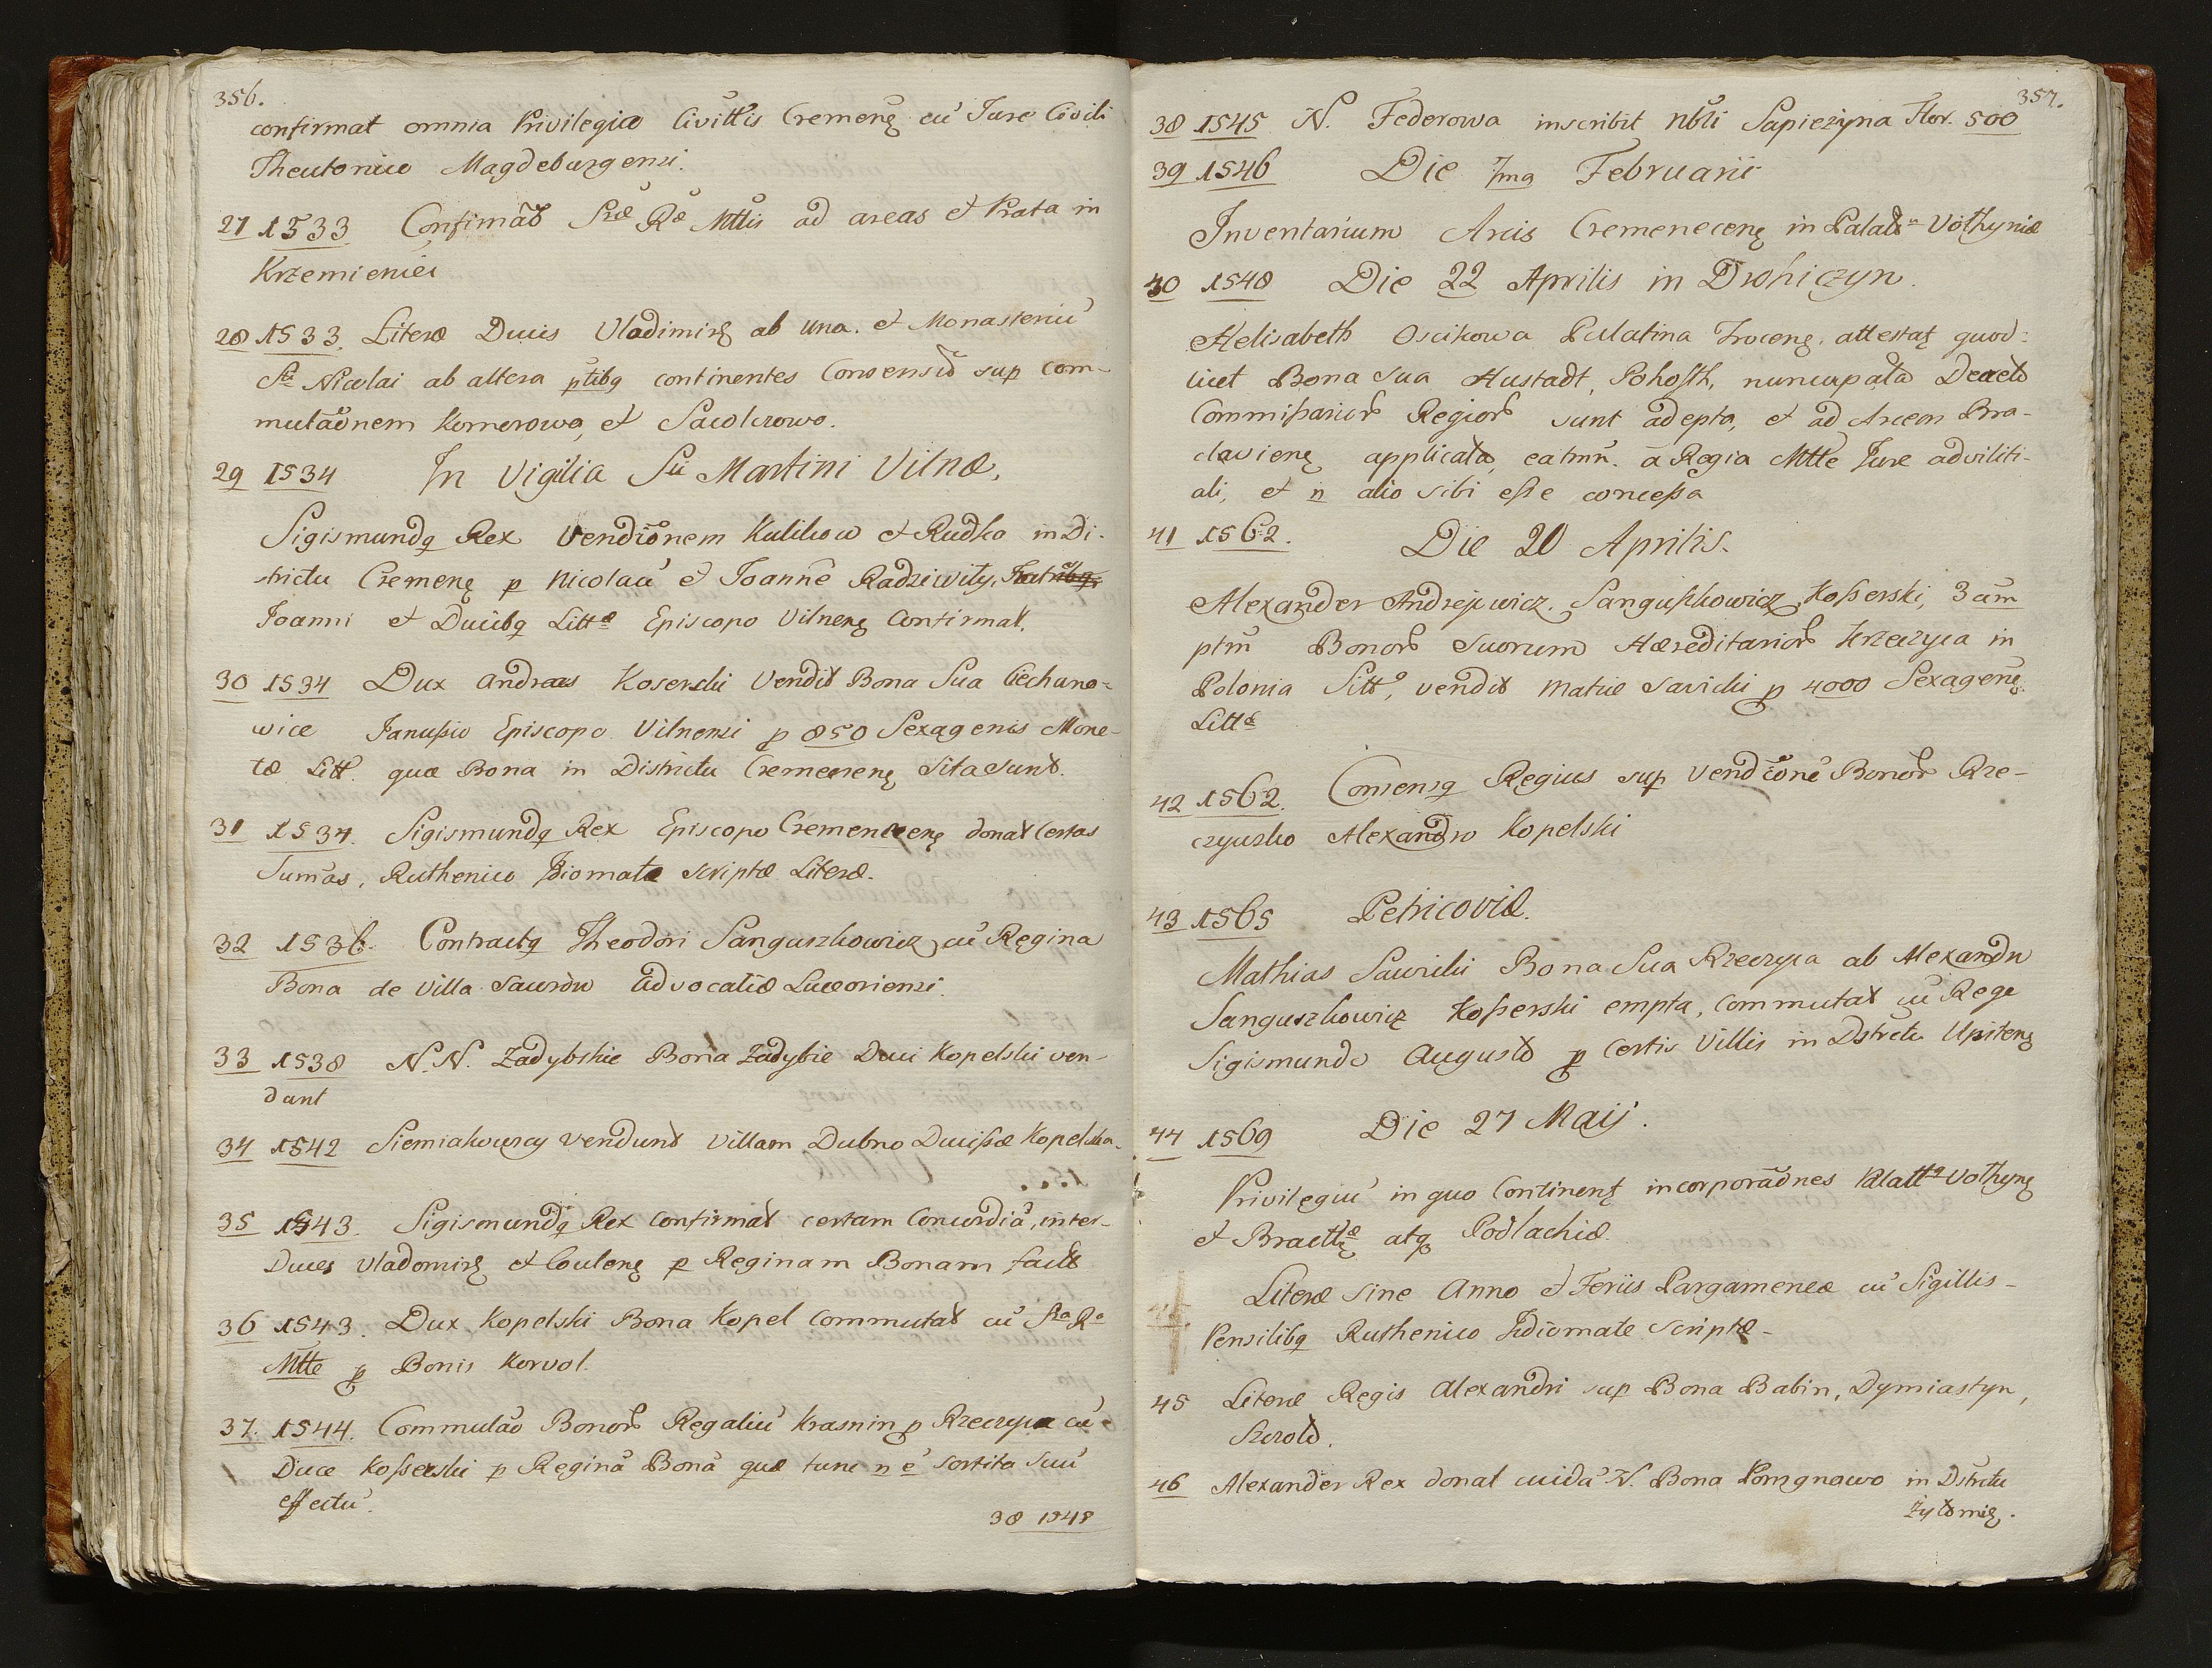 356.
confirmat omnia Privilegia Civittis Cremenę cū Jure Civili
Theutonico Magdeburgensi.
27 1533 Confirmāo Sræ Ræ Mttis ad areas et Prata in
Krzemieniec
28 1533. Literæ Ducis Vladimirę ab una. et Monasteriū
Sti Nicolai ab altera ptibq continentes Consensū sup com-
mutāonem Komorowo, et
29 1534 In Vigilia Sti Martini Vilnæ,
Sigismundq Rex Vendiōnem Kulikow et Rudka in Di-
strictu Cremenę p Nicolaū et Joannē Radziwiły,
Joanni et Ducibq Littæ Episcopo Vilnenę Confirmat.
30 1534 Dux Andreas Koserski Vendit Bona Sua Ciechano-
wice Janussio Episcopo Vilnensi p 850 Sexagenis Mone-
tæ Litt. quæ Bona in Districtu Cremenenę Sita sunt.
31 1534. Sigismundq Rex Episcopo Cremenecenę donat Certas
Sumas, Ruthenico Idiomate scriptæ Literæ.
32 1536. Contractq Theodori Sanguszkowicz cū Regina
Bona de Villa Sawrow Advocatiæ Luceoriensi.
33 1538 N.N. Zadybskie Bona Zadybie Duci Kopelski ven-
dunt
34 1542 Siemiakowscy vendunt Villam Dubno Ducissæ Kopelska.
35 1543. Sigismundq Rex confirmat certam Concordiā, inter-
Duces Vladomirę et Coulenę p Reginam Bonam factā
36 1543. Dux Kopelski Bona Kopel Commutat cū Sra Ra
Mtte p Bonis Korvol.
37. 1544. Commutāo Bonorū Regaliū Krasnin p Rzeczyca cū
Duce Kosserski p Reginā Bonā quæ tunc n ē sortita Suū
effectū.
38 1545
357.
38 1545 N. Federowa inscribit Nbli Sapieżyna Flor. 500
39 1546 Die 7ma Februarii
Inventarium Arcis Cremenecenę in Palattu Volhyniæ
40 1548 Die 22 Aprilis in Drohiczyn.
Helisabeth Oscikowa Palatina Trocenę. attestat quod:
licet Bona sua Hustadt, Pohosth, nuncupata Decreto
Commissariorū Regiorū sunt adepta, et ad Arcem Bra-
clavienę applicata, eatmn. a Regia Mtte Jure advitiliti-
ali, et n alio sibi esse concessa
41 1562. Die 20 Aprilis.
Alexander Andrejewicz. Sanguszkowicz Kosserski, 3am
ptm Bonorū Suorum Hæreditariorū Krzeczyca in
Polonia Sitt, vendit Matiæ Savicki p 4000 Sexagenę
Littæ
42 1562. Consensq Regius sup Vendiōne Bonorū Rze-
czyczko Alexandro Kopelski
43 1565 Petricoviæ.
Mathias Sawicki Bona Sua Rzeczyca ab Alexandro
Sanguszkowicz Kosserski empta, Commutat cū Rege
Sigismundo Augusto p Certis Villis in Dstrictu Upitenę
44 1569 Die 27 Maij.
Privilegiū in quo Continentę incorporāones Palattę Volhynę
et Bracttę atq Podlachiæ.
Literæ Sine Anno et Feriis Pargameneæ cū Sigillis-
Pensilibq Ruthenico Idiomate Scriptæ-
45 Literæ Regis Alexandri sup Bona Babin, Dymiastyn,
Szerold.
46 Alexander Rex donat cuidā N. Bona Pomgnowo in Dstrictu
Żytomię.